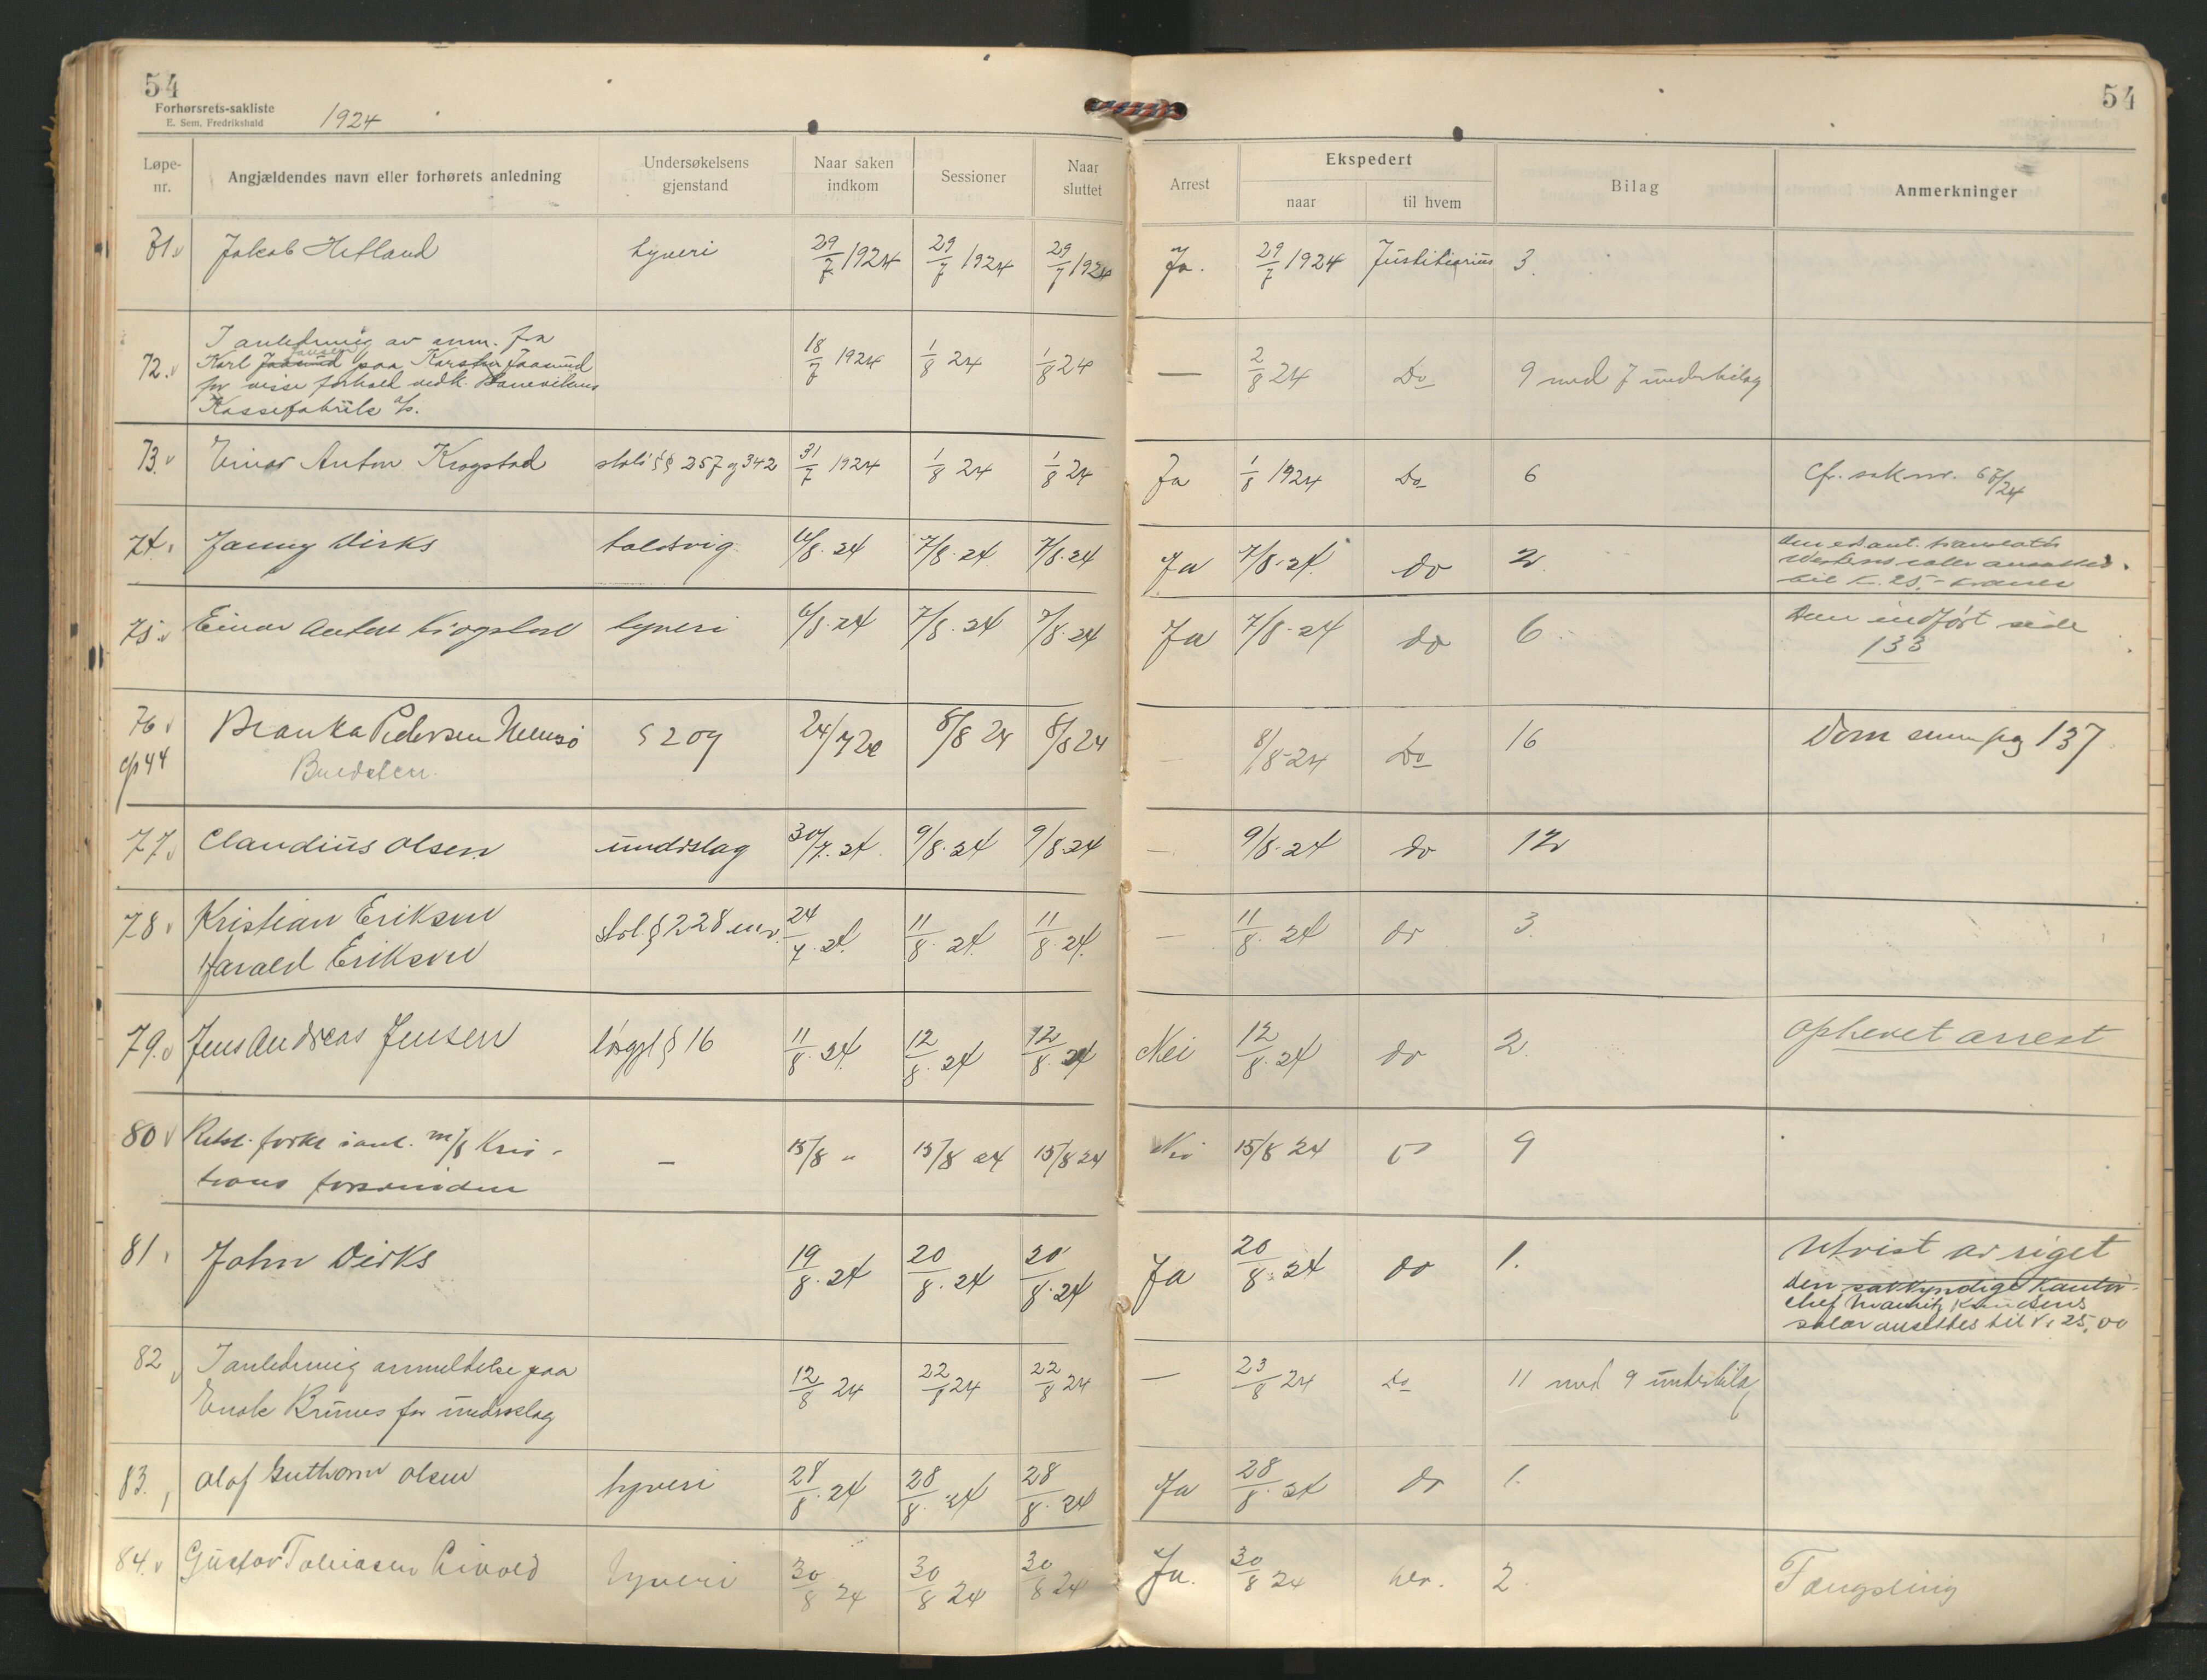 54
54
Forhørsrets-sakliste
E. Sem, Fredrikshald
1924
Løpe-nr.
Angjældendes navn eller forhørets anledning
Undersøkelsens gjenstand
Naar saken indkom
Sessioner
Naar sluttet
Arrest
Ekspedert
naar
til hvem
Bilag
Anmerkninger
71. v Jakob Hetland tyveri 29/7 1924 29/7 1924 29/7 1924 Ja. 29/7 1924 Justitiarius 3.
72. v I anledning av anm. fra
Karl Jaasund Jansen paa Karsten Jaasund
for visse forhold vedk.
Kassefabrik a/s.
18/7 1924 1/8 24 1/8 24 — 2/8 24 Do 9 med 7 underbilag
73. v Einar Anton Krogstad §§ 257 og 342 31/7 1924 1/8 24 1/8 24 Ja 1/8 1924 Do 6 cfr. sak nr. 67/24
74. Janny Dirks toldsvig. 6/8. 24 7/8. 24 7/8. 24 Ja 7/8. 24. do 2.
til K. 25,- kroner
75. v Einar Anton Krogstad tyveri 6/8. 24 7/8. 24 7/8. 24 Ja 7/8. 24 do 6.
Dom indført side
133
76 v Pedersen § 209 24/7 24 8/8 24 8/8 24 — 8/8 24 Do 16 Dom pag 137
77. v Claudius Olsen underslag 30/7. 24 9/8. 24 9/8. 24 — 9/8. 24 do 12
78. v Kristian Eriksen
Harald Eriksen
§ 228 24/7. 24. 11/8. 24. 11/8. 24. — 11/8. 24 do 3
79. v Jens Andreas Jensen løsgjl § 16 11/8. 24. 12/8. 24 12/8. 24 Nei 12/8. 24 do 2. Ophevet arrest
80 v m/s Kris-
tians
— 15/8 " 15/8 24 15/8 24 Nei 15/8 24 do 9
81. John Dirks 19/8. 24 20/8. 24 20/8. 24 Ja 20/8. 24 do 1. Utvist av riget
Den sakkyndige kontor-
chef Knudsens
salær ansettes til kr 25,00
82 v I anledning anmeldelse paa
Enok for underslag
12/8 24 22/8 24 22/8 24 — 23/8 24 Do 11 med 9 underbilag
83. Olaf Guthorm Olsen tyveri 28/8. 24 28/8. 24 28/8. 24 Ja 28/8. 24 do 1.
84. v Gustav Tobiasen Livold tyveri 30/8 24 30/8 24 30/8 24 Ja. 30/8 24 2. Fængsling